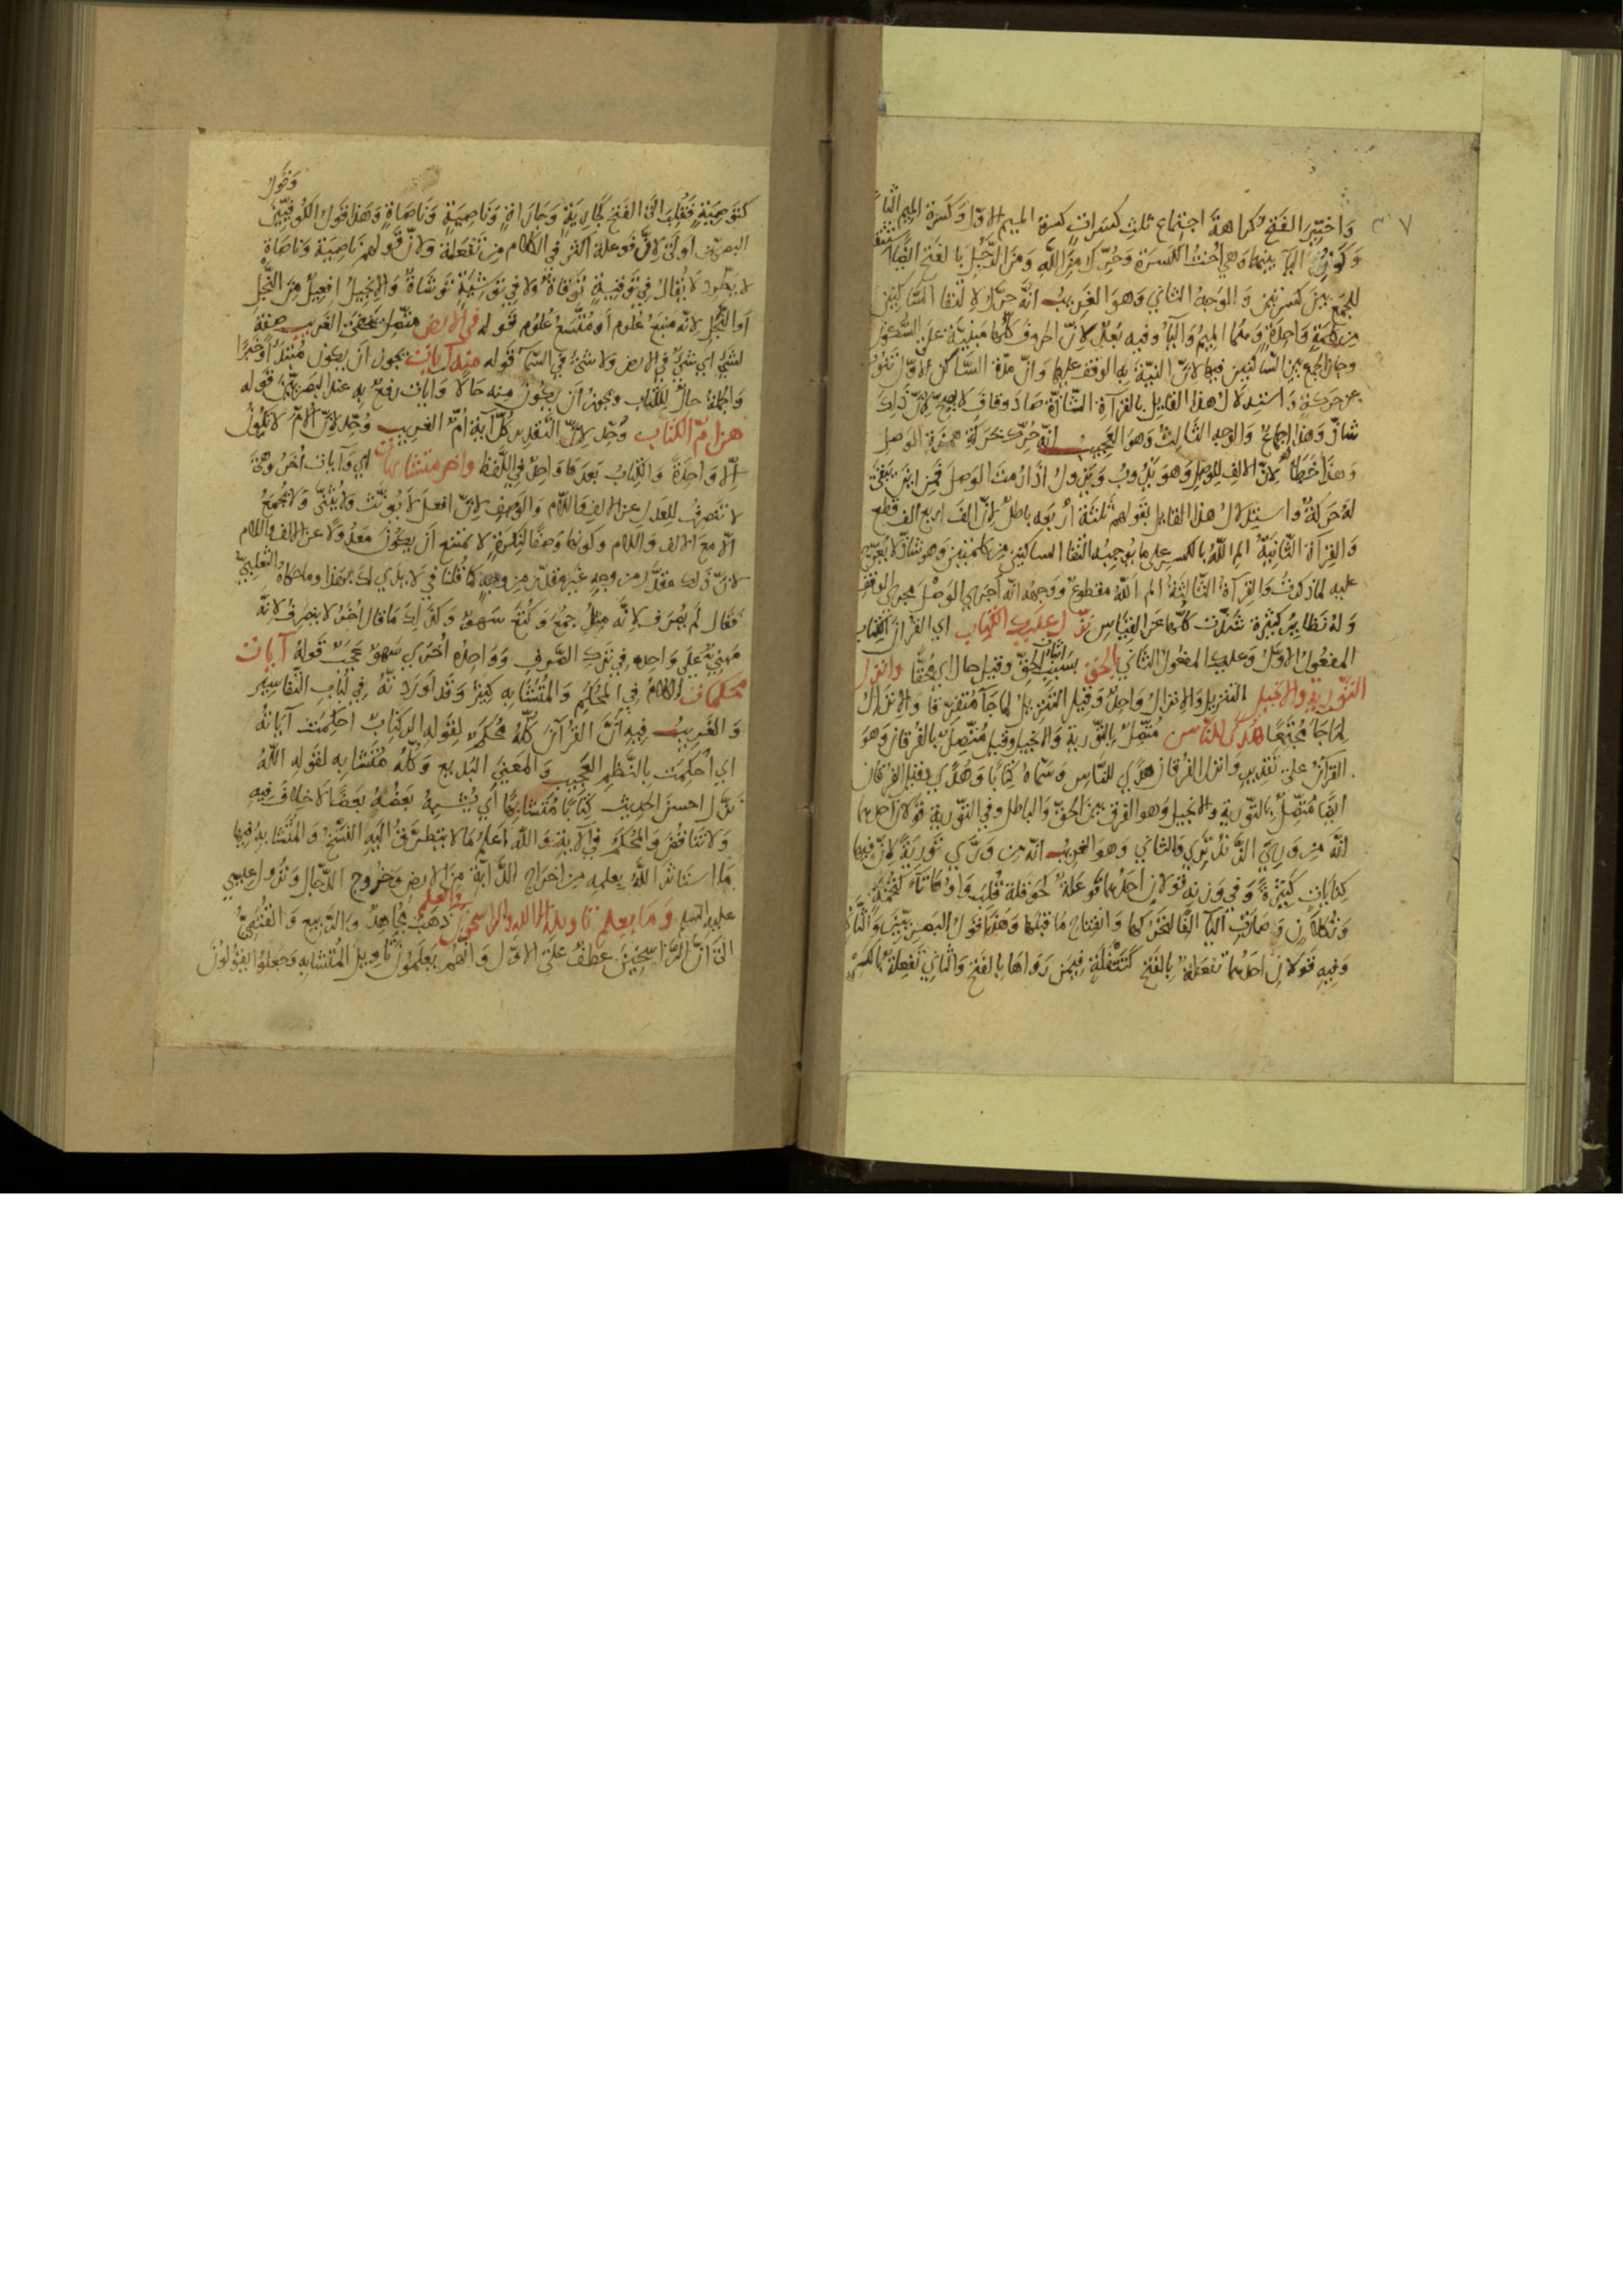 ٣٧
وَاختِيرَ الفَتح كراهةَ اجتماع ثلث كسَراتٍ كسرة الميم الاوّل وَكسَرة الميم الثا
وَكَونُ اليآ بينهما وَهي اُختُ الكسَرَة وَحُرّك مِنَ اللهِ وَمنَ الرّجُلِ بالفَتح ايضًا
للجمع بين كسرتين وَالوَجهُ الثاني وَهوَ الغَريبُ انّهُ حرّك لالتقا السّاكنين
من كلمَةٍ وَاحِدَةٍ وَهُمَا الميمُ وَاليَا وفيه بُعدٌ لانّ الحروفَ كلّها مَبنيَّة عَلى السُّكون
وجازَ الجمع بين السّاكنين فيها لانّ النيّة به الوقف عليها وَانّ مدّة السّاكن الاوّل تنُوبُ
عن حركةٍ وَاستدلال هذا القائل بالقرآةِ الشّاذّة صَادَ وقافَ لا يصحّ لانّ ذلِكَ
شاذّ وَهذا اجماعٌ وَالوَجه الثالثُ وَهوَ العجيبُ انّه حُرّكَ بحَركةِ همزة الوَصل
وَهذا خَطأٌ لانّ الالف للوصل وَهو يَذُوبُ وَيزولُ اذا رُمتَ الوَصلَ فَمِن اينَ تبقى
لهُ حَركةٌ وَاستدلالُ هذا القائل بقولهم ثَلثَهَ اربَعه باطلٌ لانّ الفَ اربع الف قطع
وَالقِرآة الثّانيَةُ الم اللهُ بالكسر على ما يُوجبُه التقا الساكنين من كلمتَين وَهو شاذّ لا يُعرّج
عليه لما ذكرتُ وَالقِرآة الثّالثةُ الم اللهُ مقطوعٌ وَوَجهُه انّه اَجرَى الوَصلَ مجرى الوقف
وَلهُ نَظايرُ كثيرة شذّت كلّها عَنِ القياسِ نزّل عليكَ الكتاب اي القرآنَ الكتاب
المفعولُ الاوّل وَعليك المفعول الثاني بالحق بسَبَبِ اثبات الحقّ وَقيل حال اي مُحقًّا وانزل
التّورية والانجيل التنزيل وَالانزالُ وَاحِدٌ وَقيل التنزيلُ لما جَآ مُتفرّقا وَالانزالُ
لِمَا جَآ مُجتَمِعًا هُدًى للنّاس مُتّصِلٌ بالتّورية وَالانجيل وقيل مُتّصِلٌ بالفُرقان وَهوَ
القرآنُ على تقدير وَانزل الفرقان هدًى للناس وَسمّاهُ كتابًا وَهُدًى وقيل الفرقان
ايضًا مُتّصِلٌ بالتّورية وَالانجيل وَهو الفرق بين الحقّ وَالباطل وفي التّورية قولان احدهما
انّهُ مِن وَرِيَ الزّندُ يَرِي وَالثاني وَهوَ الغريبُ انّه من وَرّى تَورِيَةً لانّ فيها
كِنَاياتٍ كثيرَةً وَفي وَزنه قولان اَحَدُهما فَوعَلةٌ كحَوقلة قُلِبَت وَاوُهَا تآءً كتُخَمَةٍ
وَتكلانٍ وَصَارَت اليآ الفًا لتحرّكها وَانفتاحِ مَا قبلها وَهذا قولُ البَصريّين وَالثّاني
وَفيهِ قولانِ اَحَدهما تَفعَلةٌ بالفَتح كتَتْفَلَةٍ فيمَن رَوَاهَا بالفَتح وَالثاني تفعِلةٌ بالكسر
كتَوصِيَةٍ فقُلِبَ الى الفَتحِ كجَارِيَةٍ وَجَارَاةٍ وَنَاصِيَةٍ وَنَاصَاةٍ وَهذا قولُ الكُوفيّين وَقول
البصريّين اولى لانّ فَوعلة اكثر في الكلام مِن تَفعَلة وَلانّ قولهم نَاصِيَة وَناصَاة
لا يطّرد لا يُقالُ في تَوقِيةٍ تَوقاةٌ وَلا في تَوشِيَةٍ تَوشَاةٌ وَالانجيلُ افعِيلٌ مِنَ النَّجلِ
اَو النَّجَلِ لانّه منبعُ عُلومٍ اَو مُتّسَعُ عُلومٍ قوله في الارض متّصل بيخفى الغريب صفةٌ
لشيءٍ اي شيءٌ في الارض وَلا شيءٌ في السّمآ قَوله منه آيات يجوزُ ان يكون مُبتدَاً وَخبرًا
وَالجملةُ حالٌ للكتاب ويجوزُ اَن يكُونَ منه حَالًا وَآيات رفعٌ به عند البصريّين قوله
هن امّ الكتاب وُحّدَ لانّ التّقدير كُلّ آيةٍ اُمّ الغريب وُحّد لانّ الاُمّ لا تكُونُ
اِلّا وَاحِدَةً وَالكتابُ بَعدَهَا وَاحدٌ في اللّفظ واخر متشابهات اي وَآيات اُخَرُ وهيَ
لا تنصرِفُ للعَدلِ عن الالف وَاللّام وَالوَصف لانّ افعلَ لا يُونّث وَلا يُثنّى وَلا يُجمَعُ
الّا معَ الالف وَاللام وكونها وصفًا لنكرةٍ لا يمنع اَن يكونَ مَعدُولًا عن الالف واللام
لانّ ذلك مقدّر من وجهٍ غيرُ مقدّر من وجهٍ كما قلنا في لا يدي لكَ بهذا وما حكاه الثعلبيّ
فقال لَم يُصرَف لانّه مثلُ جُمَعَ وَكُتَعَ سَهوٌ وَكذلكَ مَا قال اُخَرُ لا ينصرفُ لانّه
مَبنيّ على وَاحِدِه في تركِ الصّرفِ وَوَاحِدُه اُخرى سَهوٌ عجَبٌ قَولهُ آيات
محكمات الكلامُ في المحكم وَالمُتَشابهِ كثيرٌ وَقد اَورَدتّهُ في لُباب التّفاسير
وَالغَريبُ فيه اَنّ القُرآنَ كلّهُ مُحكَمٌ لِقوله الر كتابٌ احكِمت آيَاتُهُ
اي اُحكِمَت بالنّظم العجيب وَالمَعنى البَديع وَكلّهُ مُتَشابه لقَوله اللّهُ
نزّل احسنَ الحديث كتابًا مُتَشابهًا اي يُشبِهُ بَعضُهُ بَعضًا لا خلافَ فيه
وَلا تنَاقُضَ وَالمحكَم في الآيةِ وَاللهُ اَعلمُ مَا لا يتطرّقُ اليهِ النّسخُ وَالمُتَشابه فيها
مَا استأثرَ اللهُ بعلمه من اخرَاج الدّآبّة مِنَ الارض وَخُرُوج الدّجّال وَنُزُول عِيسَى
عليه السلم وَمَا يعلم تاويله الا الله والراسخون في العلم ذهَبَ مُجَاهِدٌ وَالرّبيع وَالقُتَبيُّ
الى انّ الرّاسخينَ عطفٌ على الاوّل وَانّهُم يَعلَمُونَ تاوِيلَ المُتشابه وَجَعلُوا يقُولُونَ